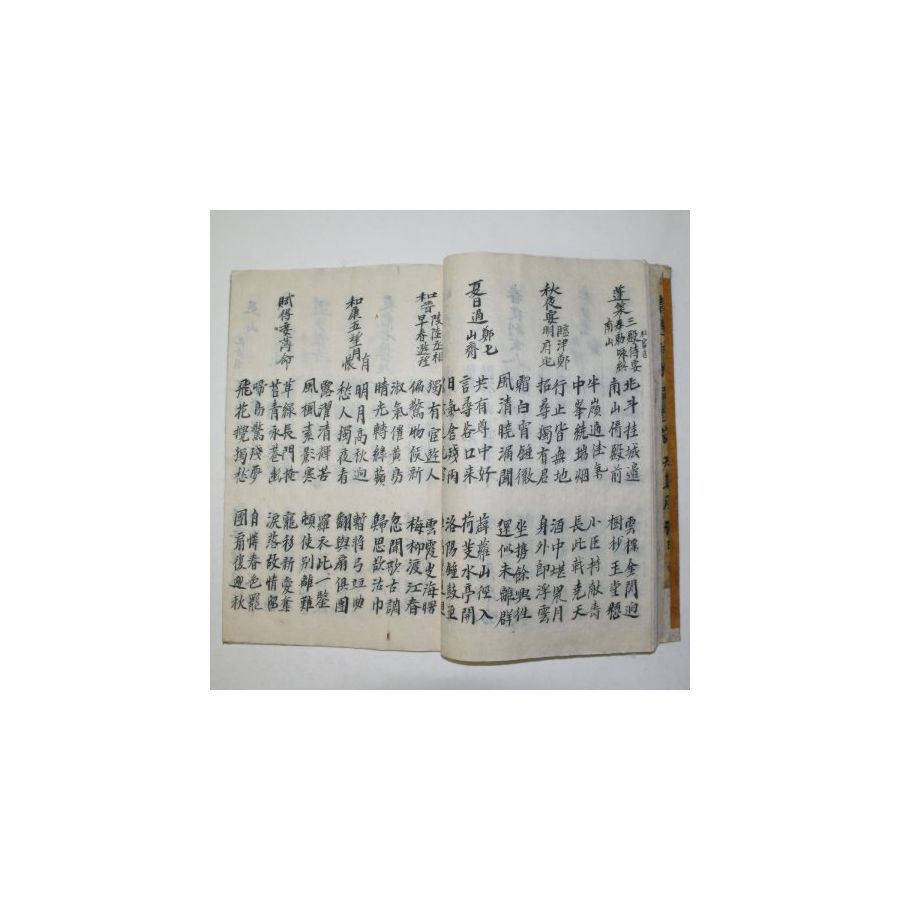 蓬萊三殿侍宴奉勅咏終南山
北斗挂城邊 雲標金闕迥
南山倚殿前 樹杪玉堂懸
半嶺通佳氣 小臣持献壽
中峯繞瑞烟 長此戴堯天
秋夜宴臨津鄭明府宅
行止皆無地 酒中堪累月
招尋獨有君 身外即浮雲
露白宵鐘徹 坐携餘興往
風清曉漏聞 還似未離群
夏日過鄭七山齋
共有尊中好 薜蘿山徑入
言尋谷口来 荷芰水亭開
日氣含殘雨 洛陽鐘鼓至
和晉陵陸丞相早春遊望
獨有宦遊人 雲霞出海曙
偏驚物候新 梅柳渡江春
淑氣催黃鳥 忽聞歌古調
晴光轉綠蘋 歸思欲沾巾
和康五望月有懷
明月高秋迥 暫將弓並曲
愁人獨夜看 翻與扇俱團
露濯清輝苦 羅衣此一鑒
風飄素影寒 頓使別離難
賦得妾薄命
草綠長門掩 寵移新愛奪
苔青永巷幽 淚落故情留
啼鳥驚殘夢 自憐春色罷
飛花攪獨愁 團扇復迎秋